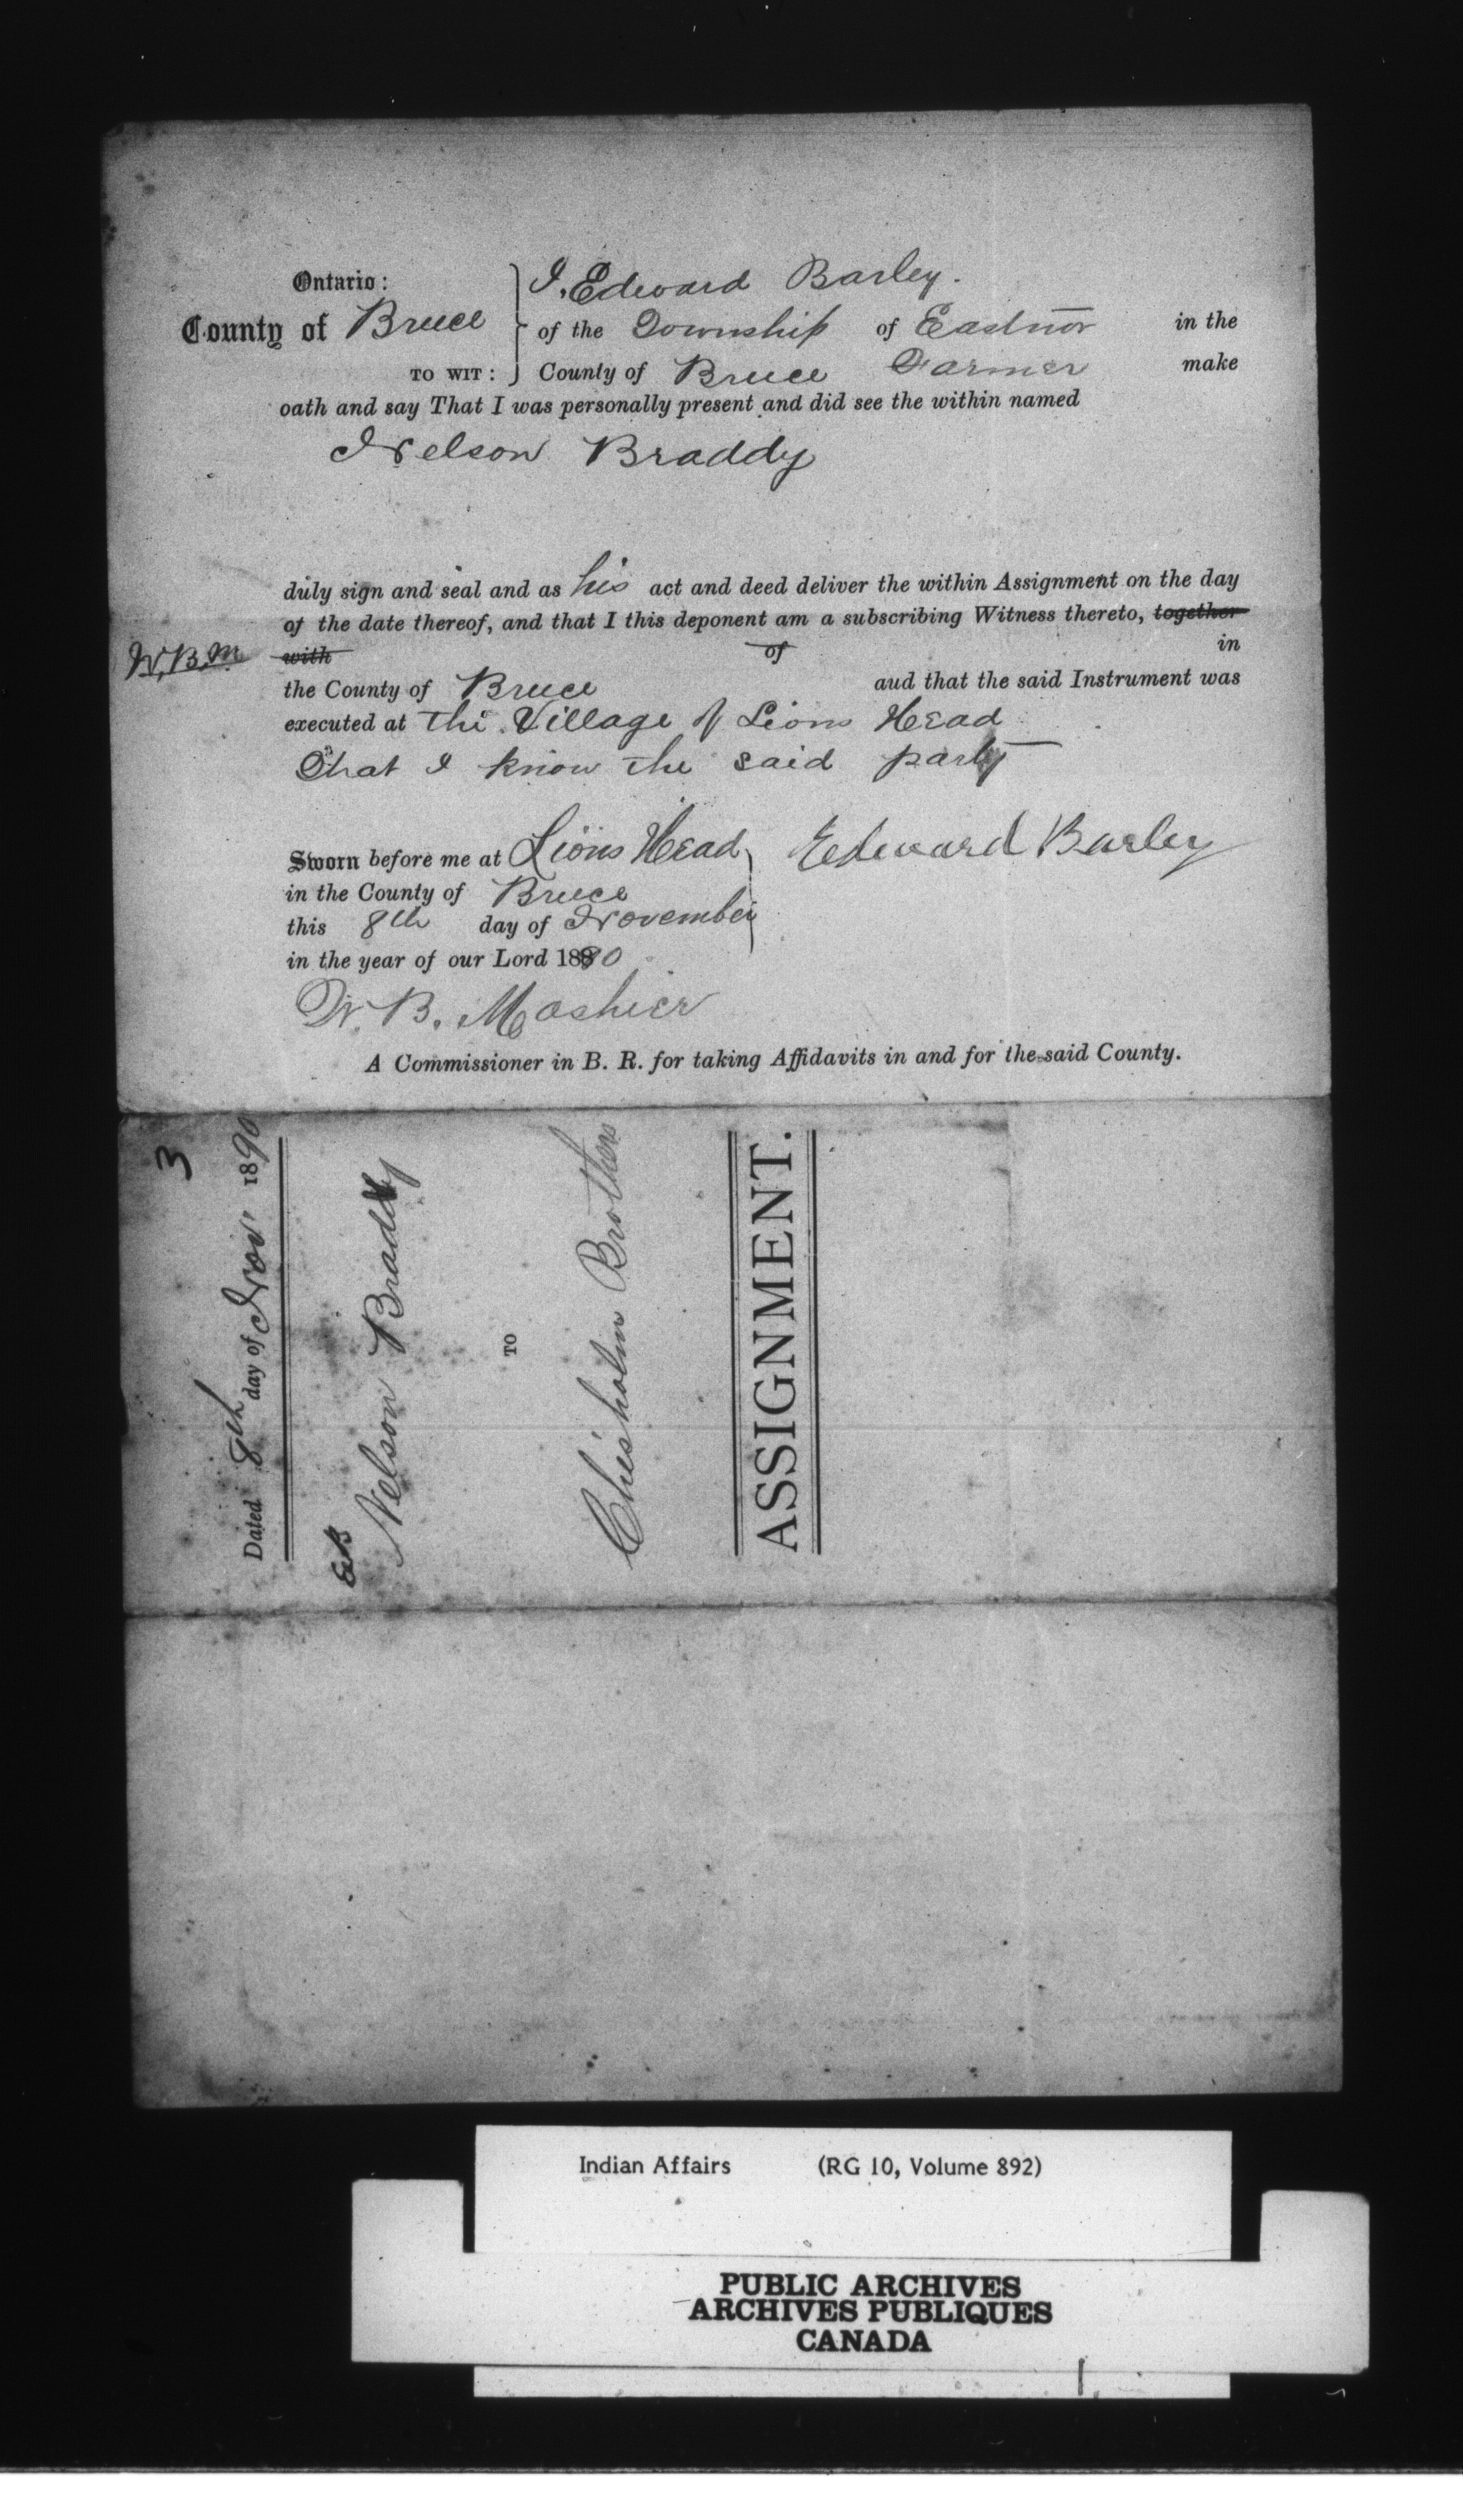 Ontario:
County of Bruce
TO WIT:
I, Edward Barley.
of the Township of Eastnor in the
County of Bruce Farmer make
oath and say That I was personally present and did see the within named
Nelson Braddy
duly sign and seal and as his act and deed deliver the within Assignment on the day
of the date thereof, and that I this deponent am a subscribing Witness thereto, together
W.B.M. with of in
the County of Bruce aud that the said Instrument was
executed at the Village of Lions Head
That I know the said party
Sworn before me at Lions Head
in the County of Bruce
this 8th day of November
in the year of our Lord 1890
Edward Barley
W. B. Moshier
A Commissioner in B. R. for taking Affidavits in and for the said County.
3
Dated 8th day of Nov. 1890
EB
Nelson Braddy
TO
Chisholm Brothers
ASSIGNMENT.
Indian Affairs (RG 10, Volume 892)
PUBLIC ARCHIVES
ARCHIVES PUBLIQUES
CANADA